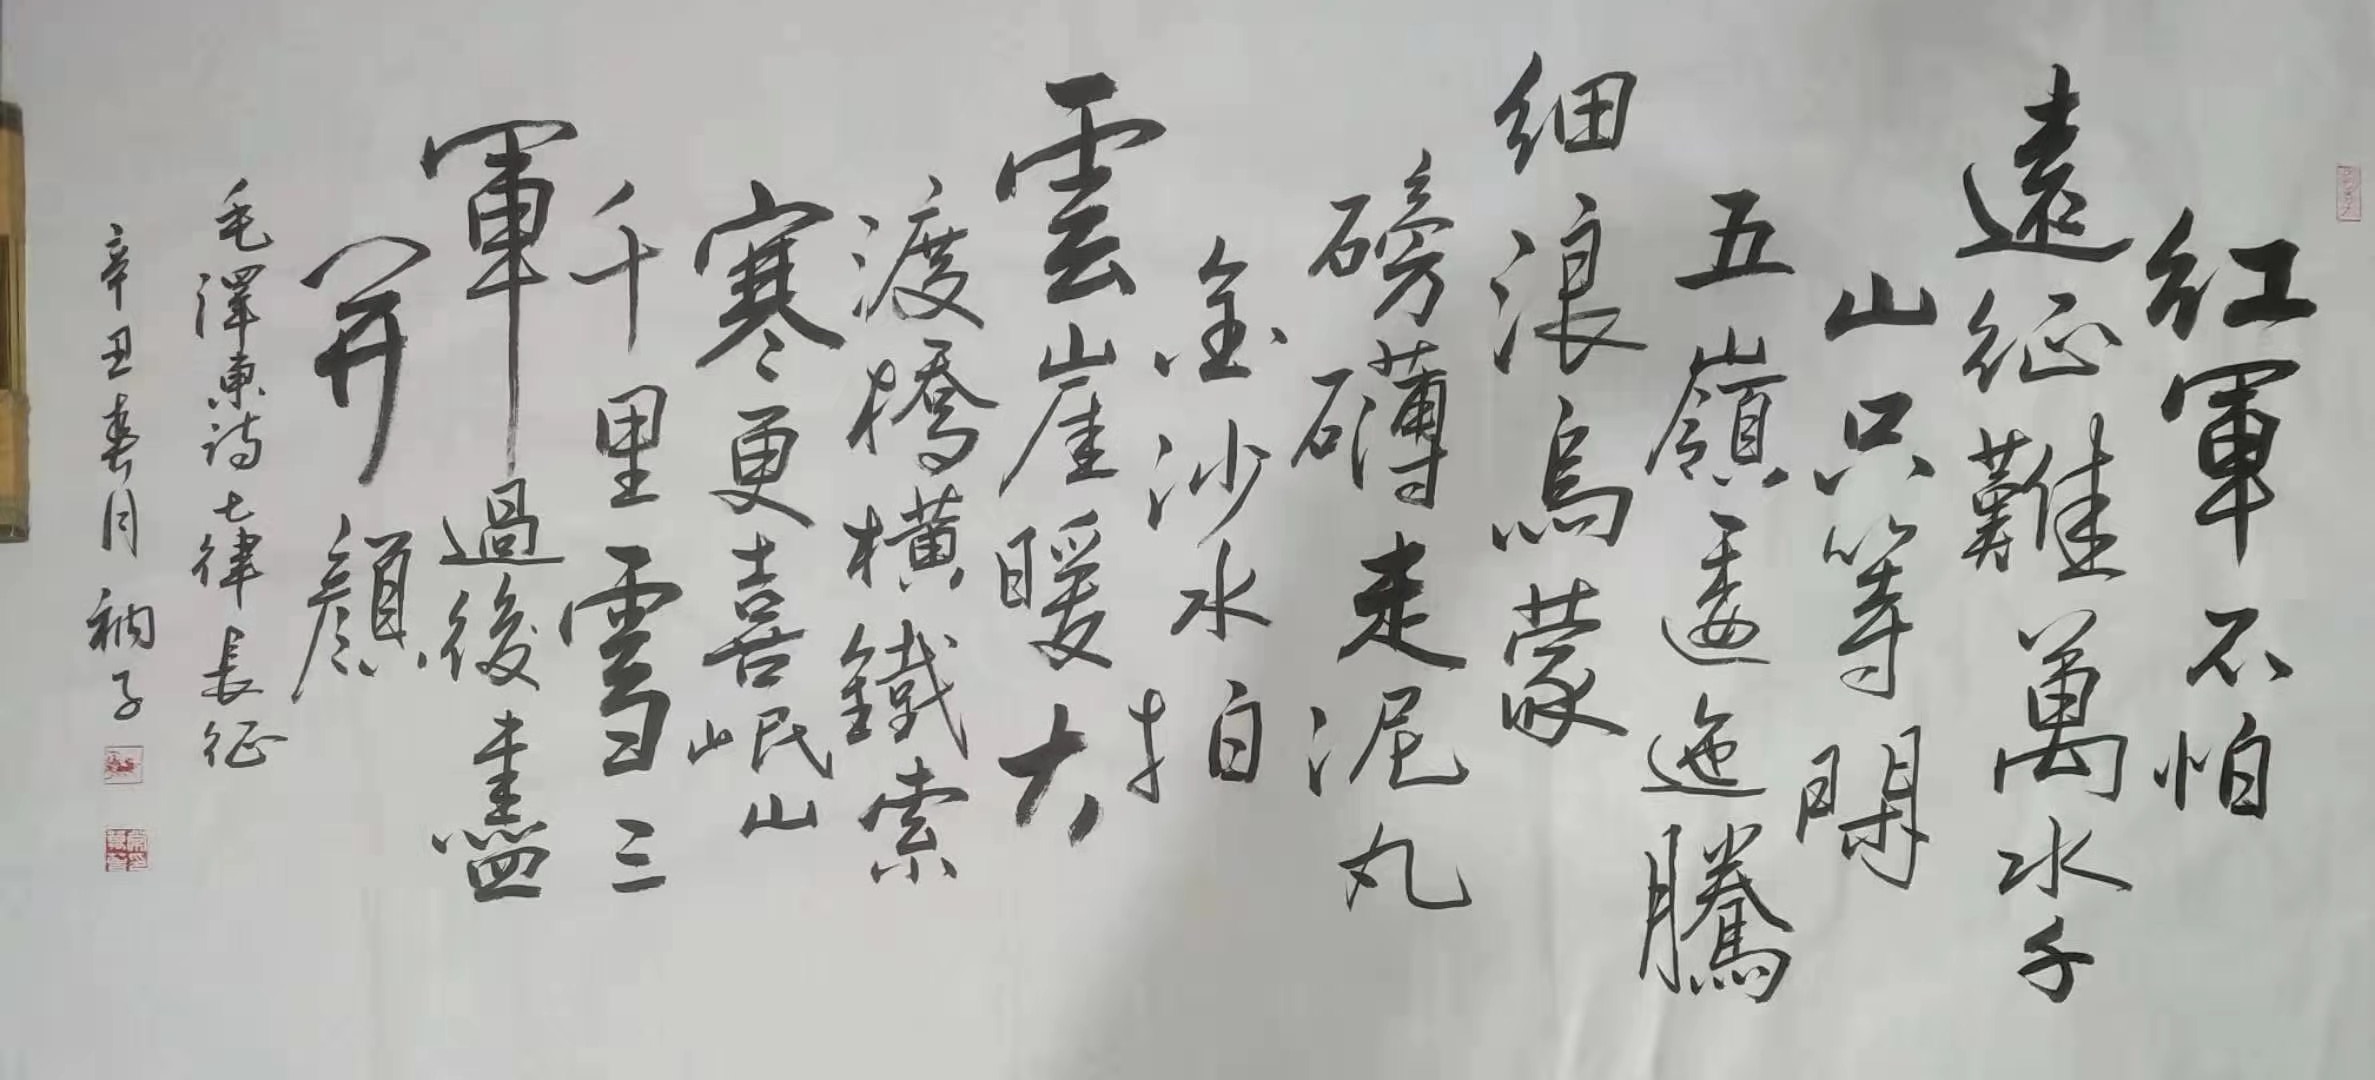 紅軍不怕
遠征難萬水千
山只等閑
五嶺逶迤騰
細浪烏蒙
磅礴走泥丸
金沙水拍
雲崖暖大
渡橋橫鐵索
寒更喜岷山
千里雪三
軍過後盡
开顏
毛澤東詩七律長征
辛丑春月衲子